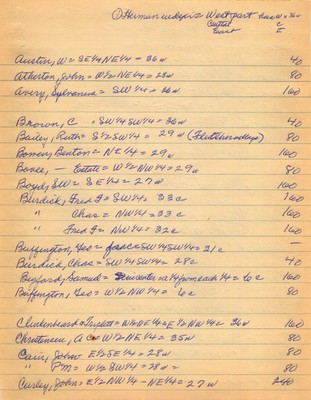 Human = West part
Central C
East E
Austin, W = SE¼NE¼ - 36w 40
Atherton, John = W½NE¼ = 28w 80
Avery, Sylvanus = SW¼ = 160
Brown, C = SW¼SW¼ = 36w 40
Bailey, Ruth = S½SW¼ = 29w 80
Bowen, Benton = NE¼ = 29w 160
- Estate = W½NW¼ = 29 80
Boyd, SW = SE¼ = 27w 160
Burdick, Fred F = SW¼ = 33c 160
" Chas = NW¼ = 33c 160
" Fred F = NW¼ = 32c 160
Buffington, Geo = SW¼SW¼ = 31c -
Burdick, Chas = SW¼SW¼ = 28c 40
Samuel = in center ¼ from each ¼ = 6c 160
Buffington, Geo = W½NW¼ = 6c 80
Clinkenbeard & Triplett = W½SE¼ = E½NW¼ = 36w 160
Christensen, A C = W½NE¼ = 35w 80
Cain, John E½SE¼ = 28w 80
" PM = W½SW¼ = 28w = 80
Curley, John = E½NW¼ - NE¼ = 27w 240